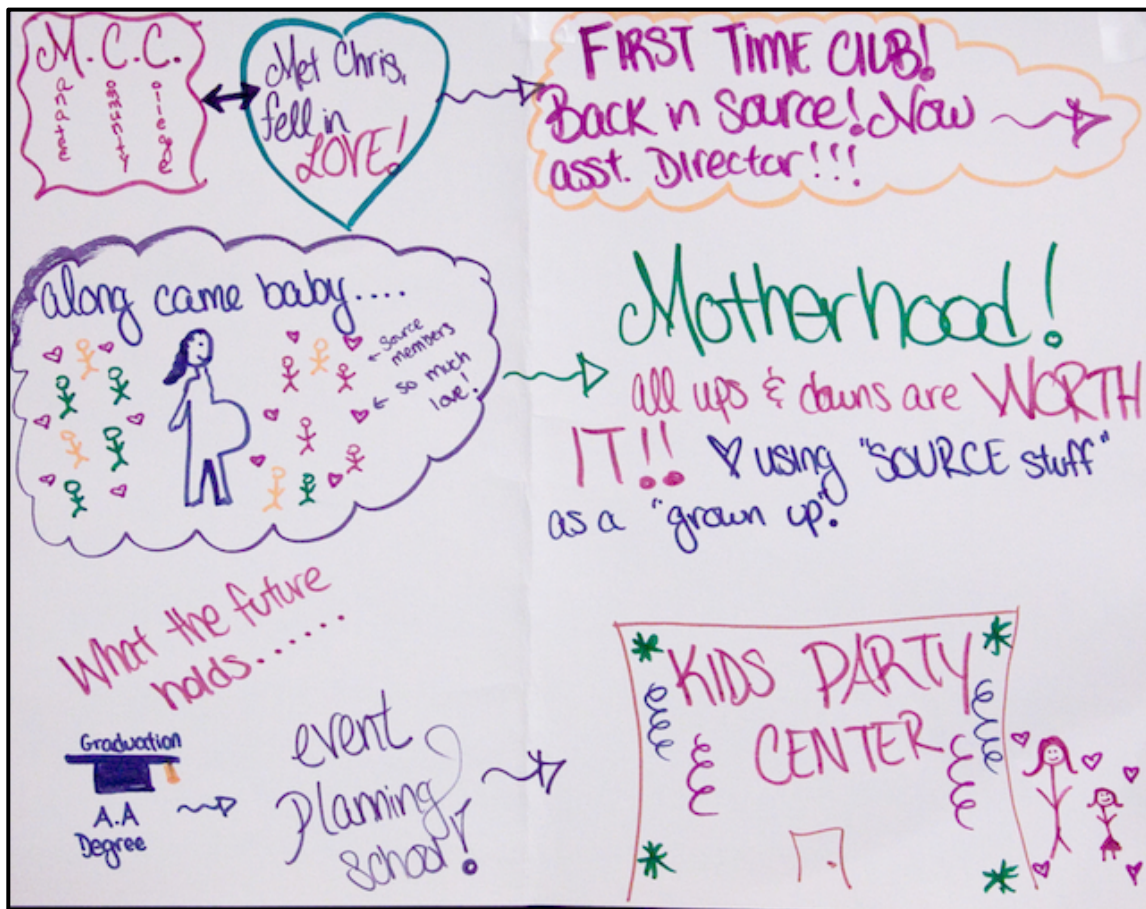 M.C.C.
anatee
ommunity
ollege
Met Chris,
fell in
LOVE!
FIRST TIME CLUB!
Back in Source! Now
asst. Director!!!
along came baby....
← Source
members
← so much
love!
Motherhood!
all ups & downs are WORTH
IT!! ♡ using "SOURCE stuff"
as a "grown up".
What the future
holds.......
Graduation
A.A
Degree
event
planning
school!
KIDS PARTY
CENTER